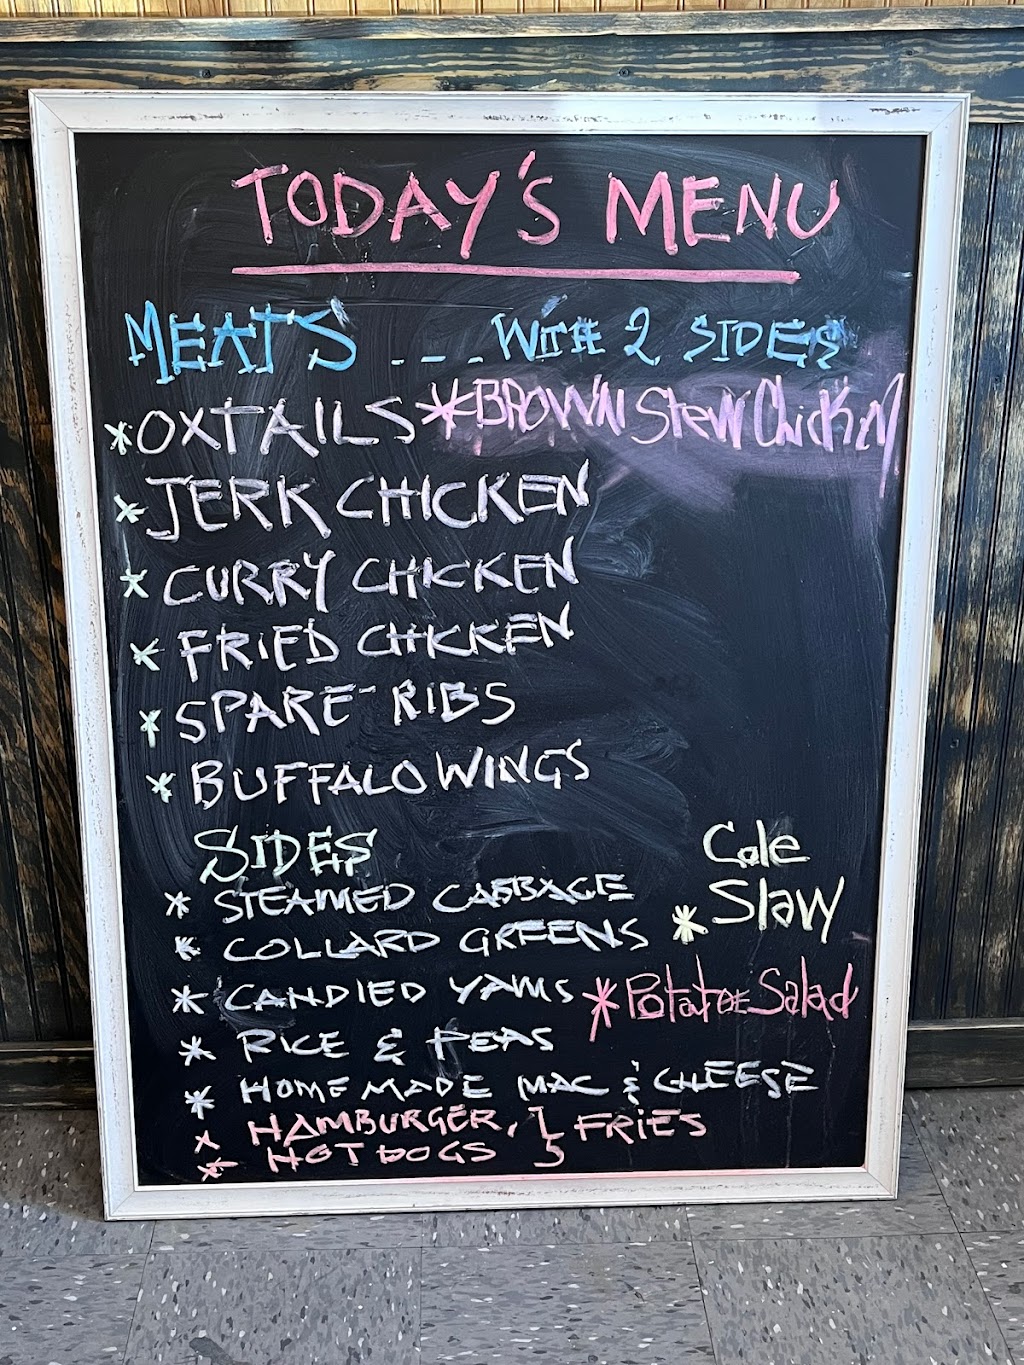 TODAY'S MENU
MEATS ... WITH 2 SIDES
*OXTAILS *BROWN Stew Chicken
*JERK CHICKEN
*CURRY CHICKEN
*FRIED CHICKEN
*SPARE-RIBS
*BUFFALO WINGS
SIDES
*STEAMED CABBAGE
*COLLARD GREENS
*CANDIED YAMS
*RICE & PEAS
*HOME MADE MAC & CHEESE
*HAMBURGER, } FRIES
*HOT DOGS
Cole
*Slaw
*Potatoe Salad